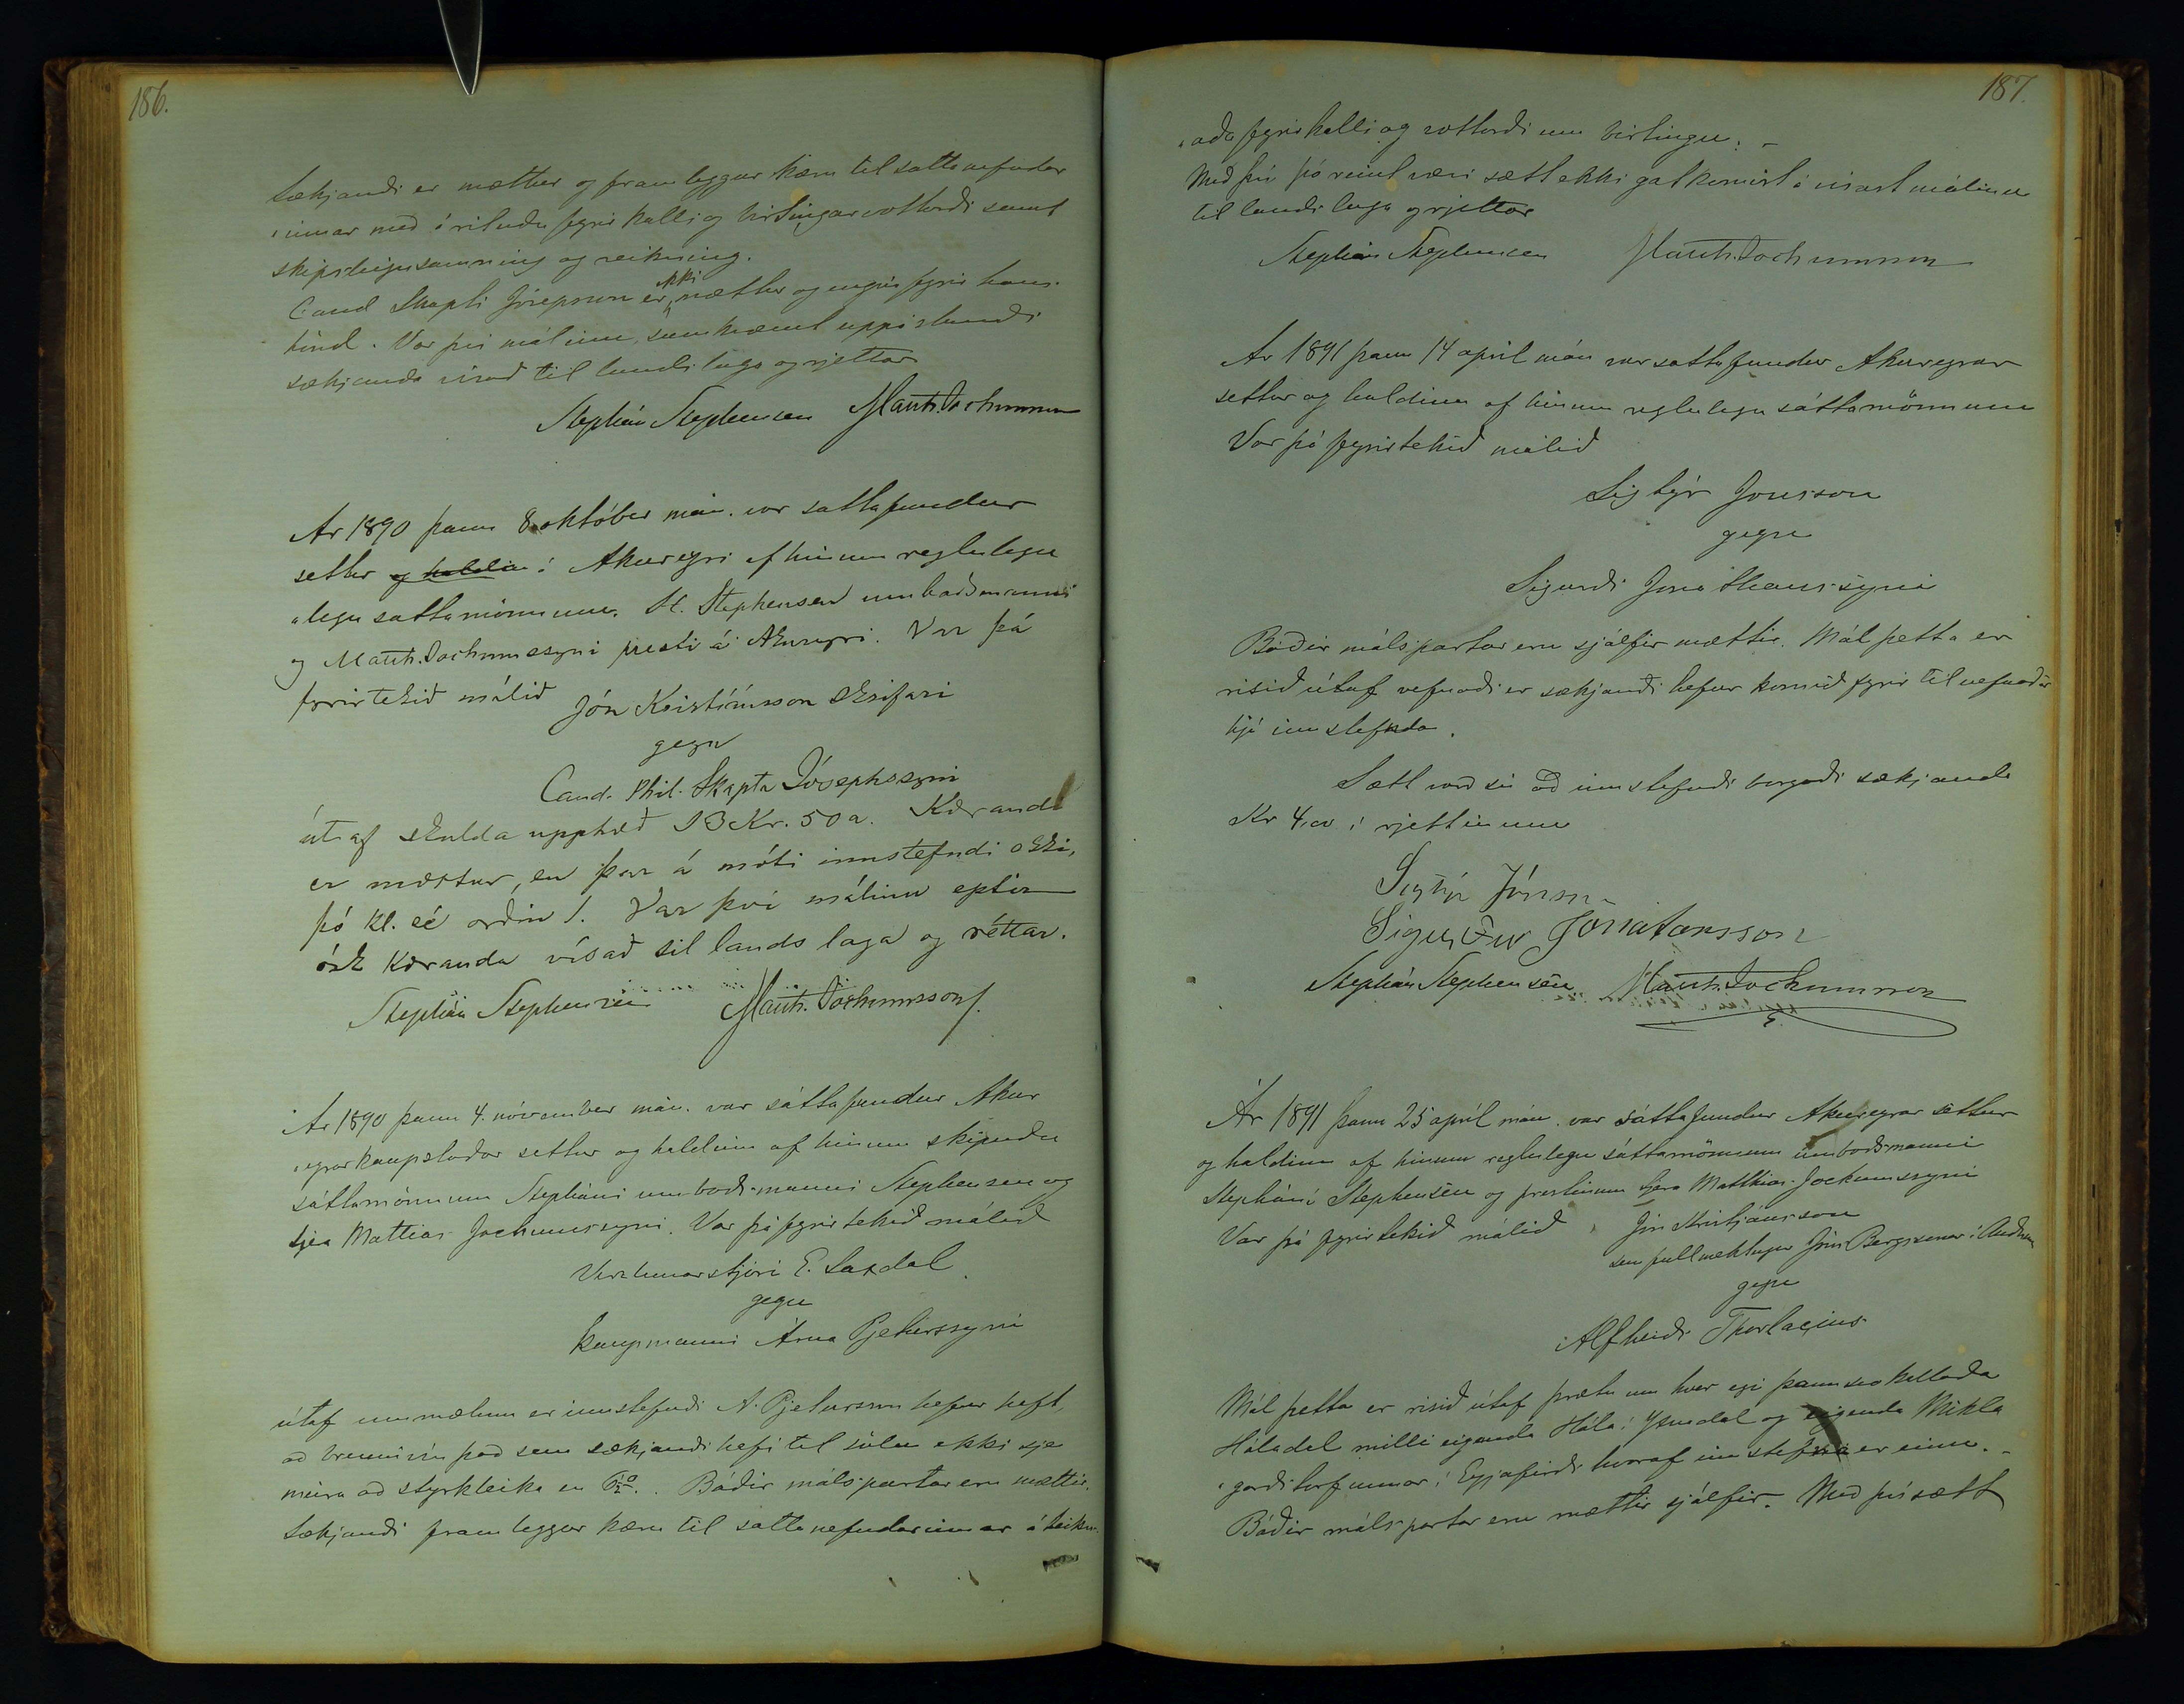 186.
Sækjandi er mættur og framleggur kæru til sáttanefndar
innar með árituðu fyrirkalli og birtingarvottorði samt
skipsleigusamning og reikning.
Cand Skapti Jósepsson er ekki mættur og enginn fyrir hans
hönd. Var því málinu, samkvæmt uppástandi
sækjanda vísað til landslaga og rjettar
Stephán Stephensen Matth. Jochumsson
Ar 1890 þann 8 október mán. var sattafundur
settur og haldin í Akureyri af hinum reglulegu
legu sattamönnum. St. Stephensen umboðsmanni
og Matth. Jochumssyni presti á Akureyri. Var þá
fyrirtekið málið Jón Kristínsson skrifari
gegn
Cand. Phil. Skapta Jósephssyni
út af skulda upphæð 13 Kr. 50 a. Kærandi
er mættur, en þar á móti innstefndi ekki,
þó kl. sé orðin 1. Var því málinu eptir
ósk kæranda vísað til lands laga og réttar.
Stephán Stephensen Matth. Jochumsson.
Ar 1890 þann 4. nóvember mán. var sáttafundur Akur
eyrarkaupstaðar settur og haldinn af hinum skipuðu
sáttamönnum Stepháni umboðsmanni Stephensen og
sjera Mattias Jochumssyni. Var þá fyrirtekið málið
Verzlunarstjóri E. Laxdal
gegn
kaupmanni Árna Pjeturssyni
útaf ummælum er innstefndi A. Pjetursson hefur haft,
að brennivín það sem sækjandi hefi til sölu ekki sje
meira að styrkleika en 6½°. Báðir málspartar eru mættir.
Sækjandi framleggur kæru til sattanefndarinnar áteikn-
187.
aða fyrirkalli og vottorði um birtingu. –
Með því þó reint væri sætt ekki gat komist á vísast málinu
til landslaga og rjettar
Stephán Stephensen Matth. Jochumsson
Ar 1891 þann 14 april mán var sattafundur Akureyrar
settur og haldinn af hinum reglulegu sáttamönnum
Var þá fyrirtekið málið
Sigtýr Jonsson
gegn
Sigurði Jonathanssyni
Báðir málspartar eru sjálfir mættir. Mál þetta er
risið útaf vefnaði er sækjandi hefur komið fyrir til vefnaðar
hjá innstefnda.
Sætt varð sú að innstefndi borgaði sækjanda
Kr 4,00 í rjettinum
Sigtýr Jónsson
Sigurður Jónatansson
Stephán Stephensen Matth. Jochumsson
Ár 1891 þann 25 apríl mán. var sáttafundur Akureyrar settur
og haldinn af hinum reglulegu sáttamönnum umboðsmanni
Stepháni Stephensen og prestinum sjera Matthias Jochumssyni
Var þá fyrirtekið málið Jón Kristjánsson
sem fullmektugur Jóns Bergssonar í
gegn
Alfheiði Thorlacius
Mál þetta er risið útaf þrætu um hver egi þann svo kallaða
Háladal milli eiganda Hála í Yxnadal og eigenda Mikla
garðstorfunnar í Eyjafirði hvaraf innstefnda er einn. –
Báðir málspartar eru mættir sjálfir. Með því sætt